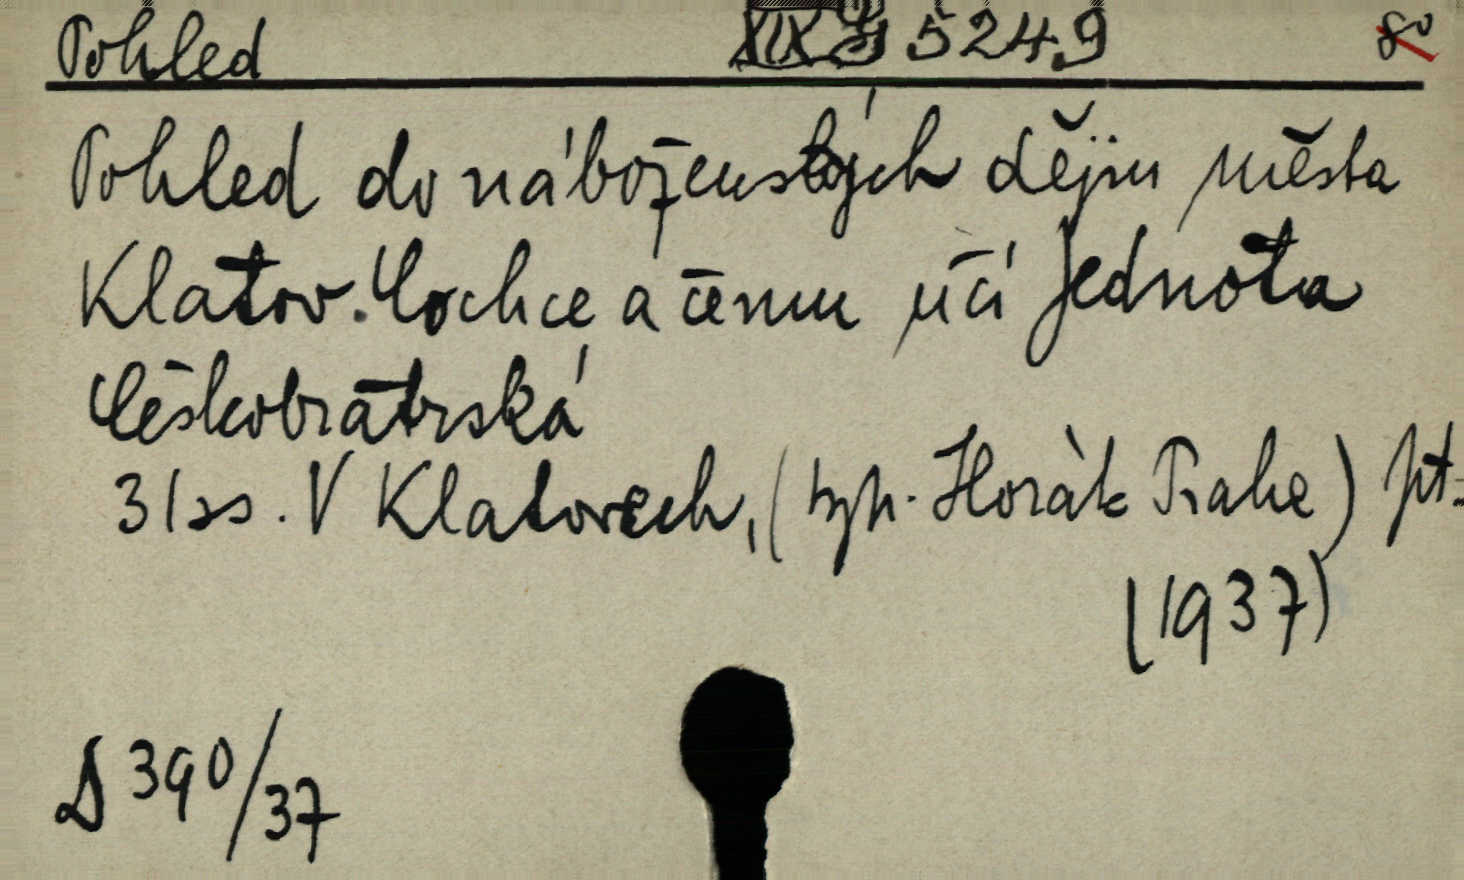 Pohled XIX G 5249 8°
Pohled do náboženských dějin města
Klatov. Co chce a čemu učí Jednota
Českobratrská
31 ss. V Klatovech, (typ. Horák Praha) pt.
(1937)
D 390/37